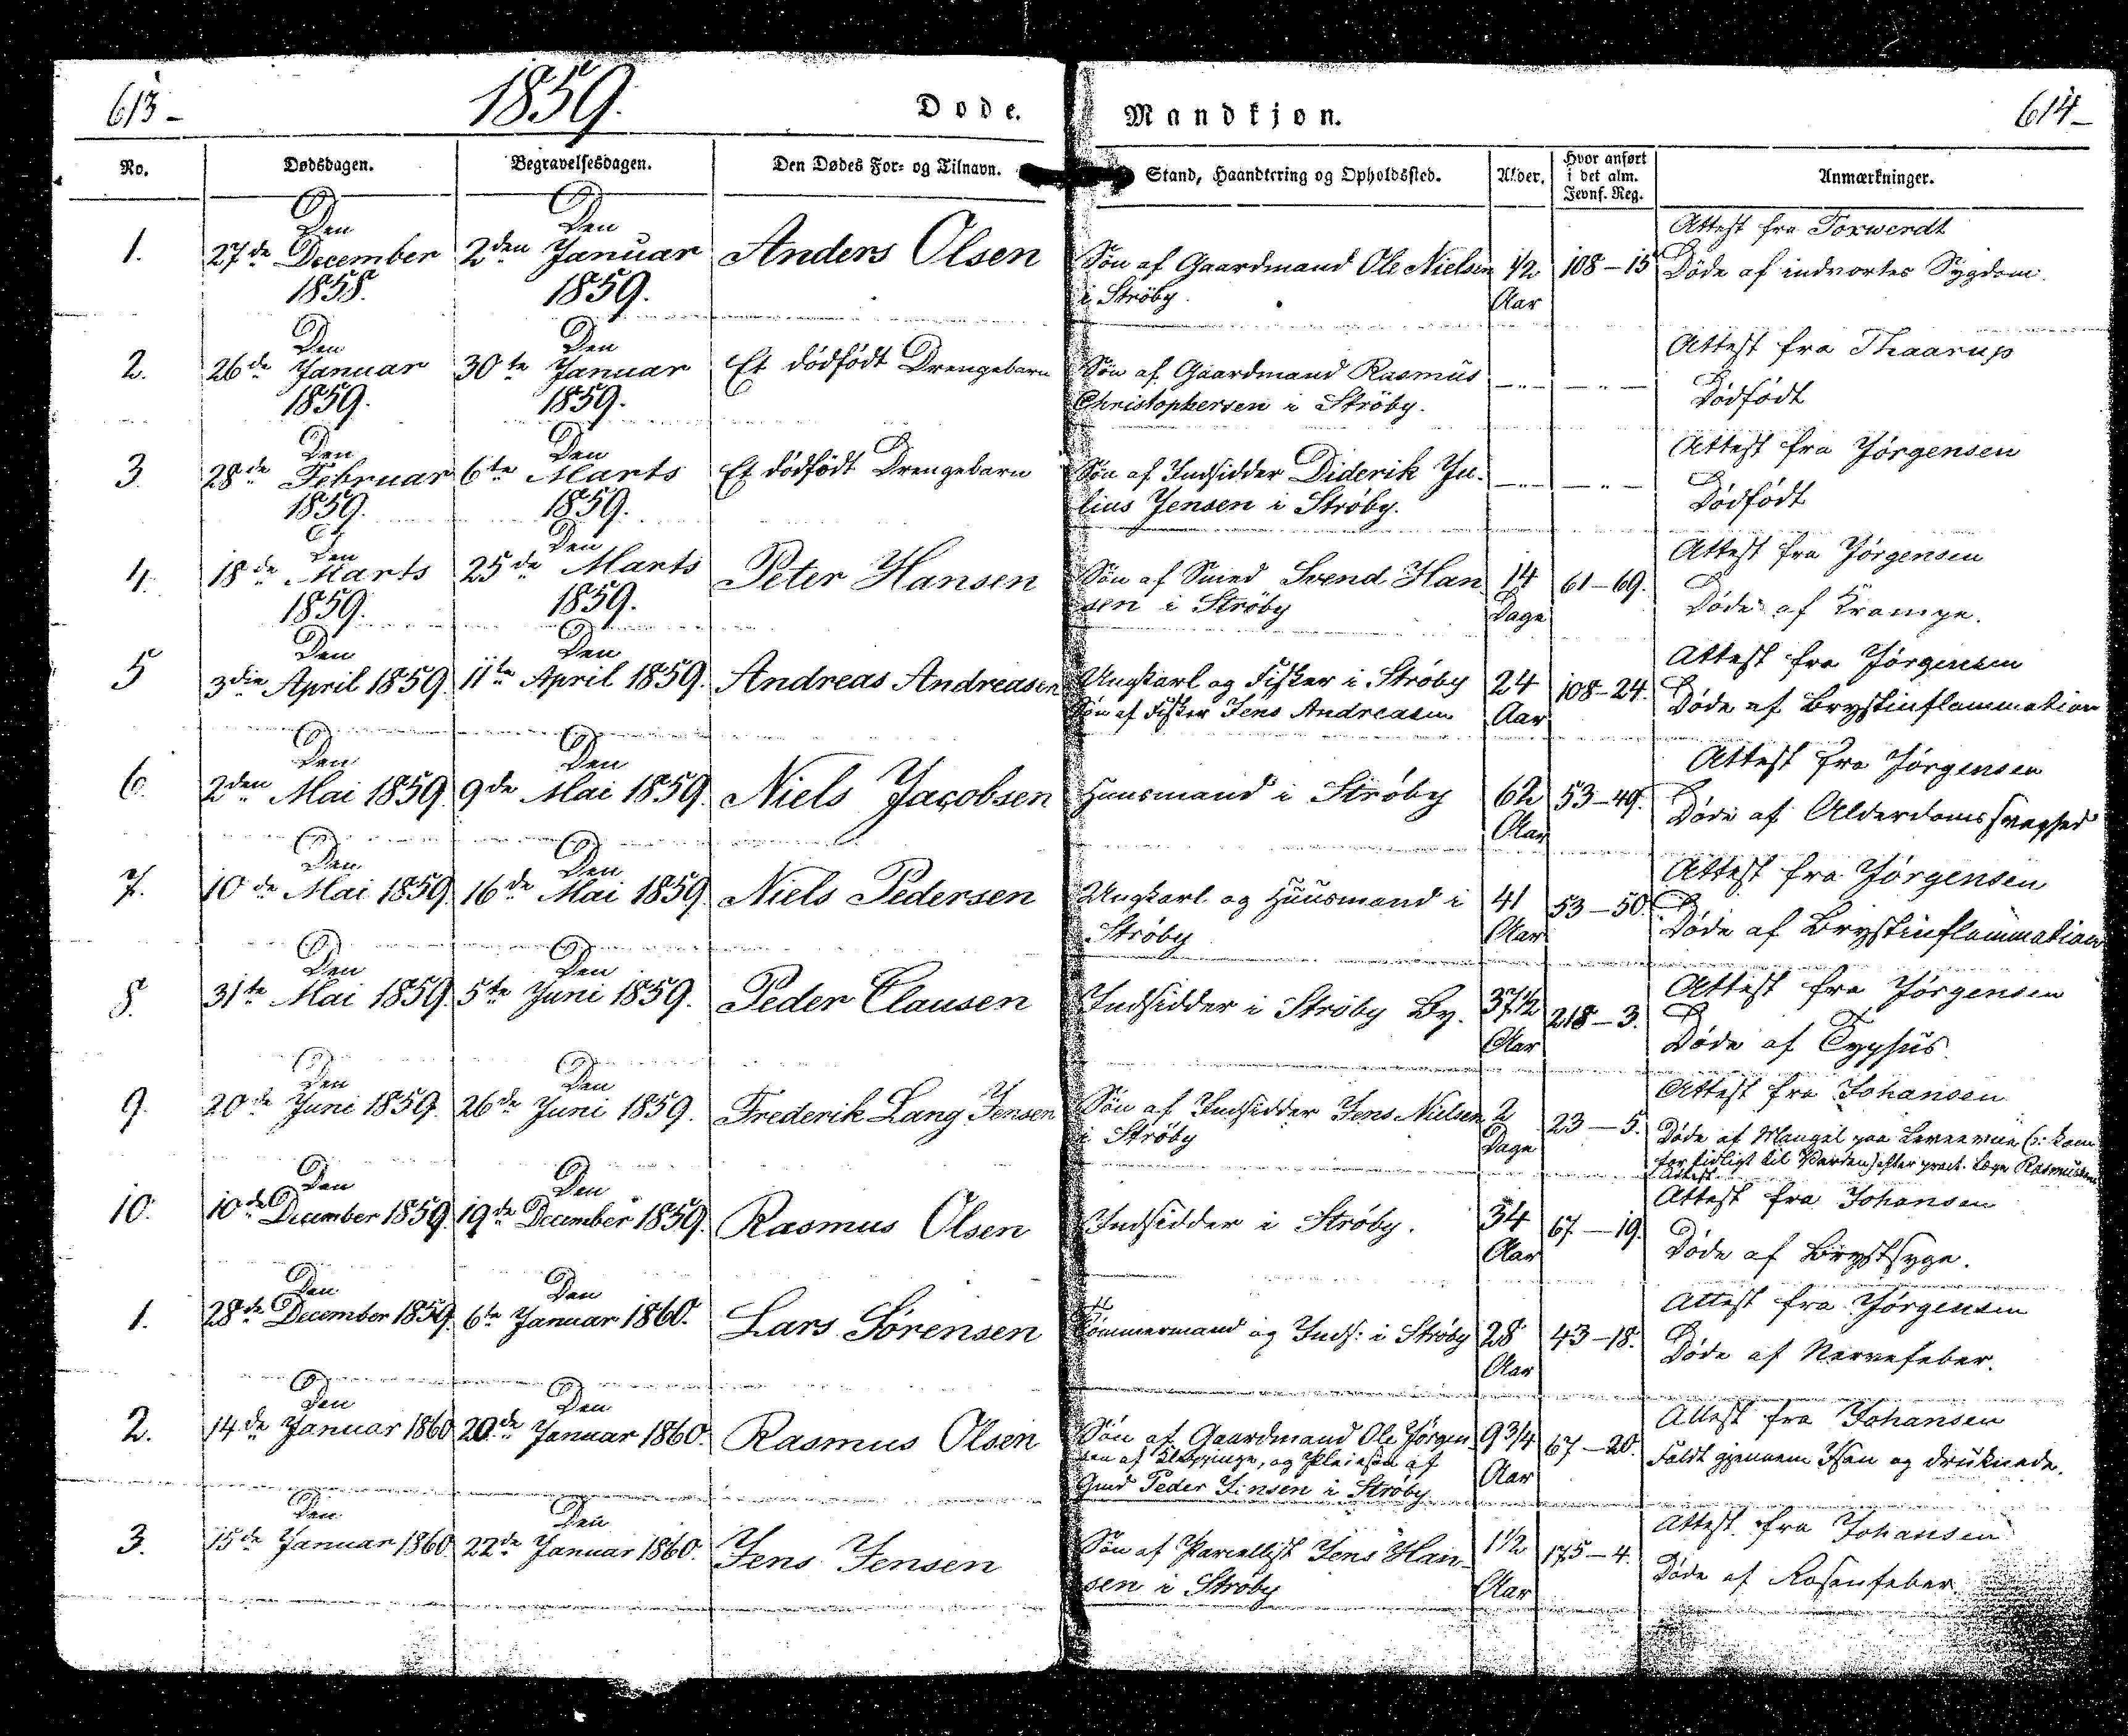 613-
1859.
Døde.
Mandkjøn.
614-
No.
Dødsdagen.
Begravelsesdagen.
Den Dødes For- og Tilnavn.
Stand, Haandtering og Opholdssted.
Alder.
Hvor anført
i det alm.
Jevnf. Reg.
Anmærkninger.
1.
Den
27de December
1858.
Den
2den Januar
1859.
Anders Olsen
Søn af Gaardmand Ole Nielsen
i Ströby.
1/2
Aar
108-15
Attest fra Torwendt
Døde af indvortes Sygdom.
2.
Den
26de Januar
1859.
Den
30te Januar
1859.
Et dødfødt Drengebarn
Søn af Gaardmand Rasmus
Christophersen i Ströby.
-"-
-"-
Attest fra Thaarup
Dødfødt
3
Den
28de Februar
1859.
Den
6te Marts
1859.
Et dødfødt Drengebarn
Søn af Indsidder Diderik Ju-
lius Jensen i Strøby.
-"-
-"-
Attest fra Jørgensen
Dødfødt
4.
Den
18de Marts
1859.
Den
25de Marts
1859.
Peter Hansen
Søn af Smed Svend Han
sen i Strøby
14
Dage
61-69.
Attest fra Jørgensen
Døde af Krampe.
5
Den
3die April 1859
Den
11te April 1859.
Andreas Andreasen
Ungkarl og Fisker i Strøby
Søn af Fisker Jens Andreasen
24
Aar
108-24.
Attest fra Jørgensen
Døde af Brystinflammation
6.
Den
2den Mai 1859
Den
9de Mai 1859.
Niels Jacobsen
Huusmand i Strøby
62
Aar
53-49.
Attest fra Jørgensen
Døde af Alderdomssvaghed
7.
Den
10de Mai 1859
Den
16de Mai 1859
Niels Pedersen
Ungkarl og Huusmand i
Strøby
41
Aar
53-50.
Attest fra Jørgensen
Døde af Brystinflammation
8.
Den
31te Mai 1859.
Den
5te Juni 1859.
Peder Clausen
Indsidder i Strøby By.
37 1/2
Aar
218-3.
Attest fra Jørgensen
Døde af Typhus.
9.
Den
20de Juni 1859.
Den
26de Juni 1859.
Frederik Lang Jensen
Søn af Indsidder Jens Nielsen
i Strøby
2
Dage
23-5.
Attest fra Johansen
Døde af Mangel paa Leveevne (: kom
for tidligt til Verden) efter pract. Læge Rasmussens
Attest.
10.
Den
10de December 1859.
Den
19de December 1859.
Rasmus Olsen
Indsidder i Strøby.
34
Aar
67-19.
Attest fra Johansen
Døde af Brystsyge.
1.
Den
28de December 1859.
Den
6te Januar 1860.
Lars Sørensen
Tømmermand og Inds: i Strøby
28
Aar
43-18.
Attest fra Jørgensen
Døde af Nervefeber.
2.
Den
14de Januar 1860
Den
20de Januar 1860.
Rasmus Olsen
Søn af Gaardmand Ole Jørgen
sen af Klippinge, og Pleiesøn af
Gmd Peder Jensen i Strøby.
9 3/4
Aar
67-20.
Attest fra Johansen
Faldt gjennem Isen og druknede.
3.
Den
15de Januar 1860
Den
22de Januar 1860.
Jens Jensen
Søn af Parcellist Jens Han-
sen i Strøby
1 1/2
Aar
175-4.
Attest fra Johansen
Døde af Rosenfeber.